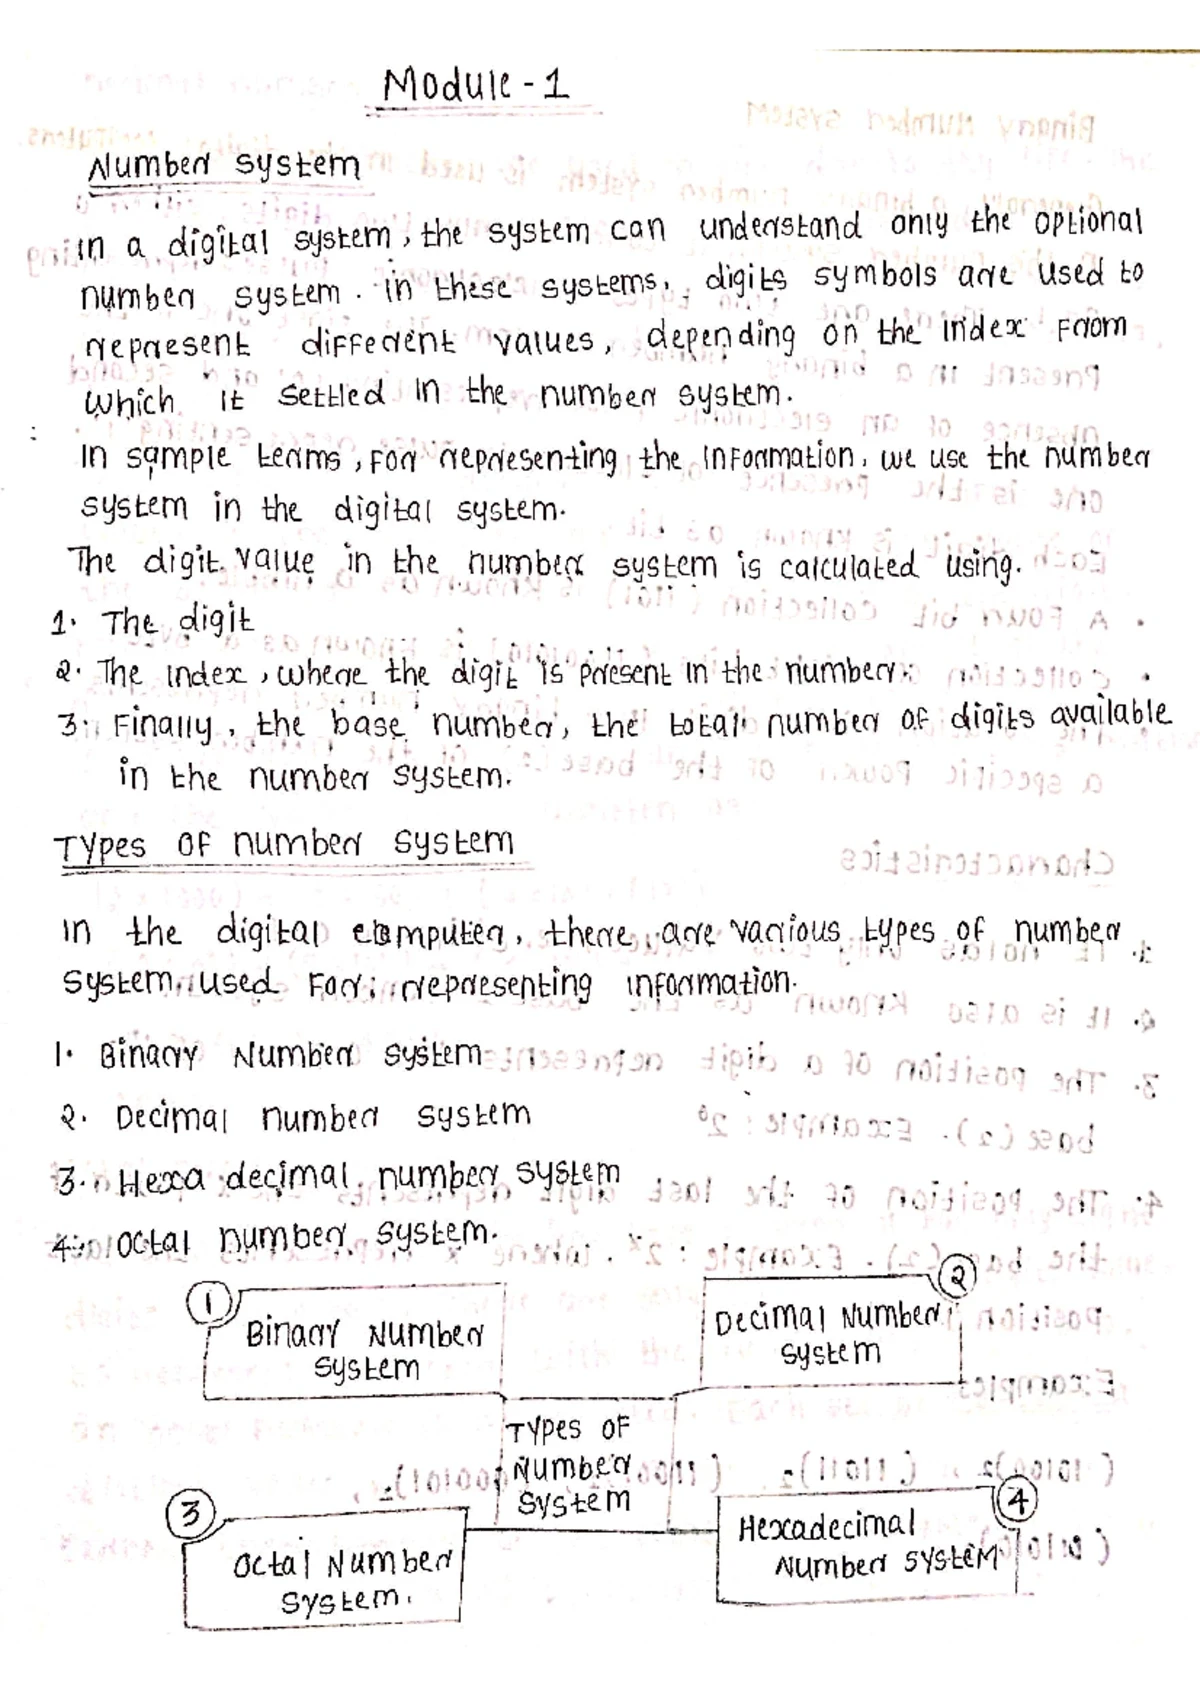 Module - 1
Number system
in a digital system, the system can understand only the optional
number system. in these systems, digits symbols are used to
represent different values, depending on the index from
which it settled in the number system.
In sample terms, for representing the information, we use the number
system in the digital system.
The digit value in the number system is calculated using.
1. The digit
2. The index, where the digit is present in the number.
3. Finally, the base number, the total number of digits available
in the number system.
Types of number system
in the digital computer, there are various types of number
system used for representing information.
1. Binary Number system
2. Decimal number system
3. Hexa decimal number system
4. Octal number system.
1
Binary Number
system
2
Decimal Number
system
Types of
Number
system
3
Octal Number
system.
4
Hexadecimal
Number system